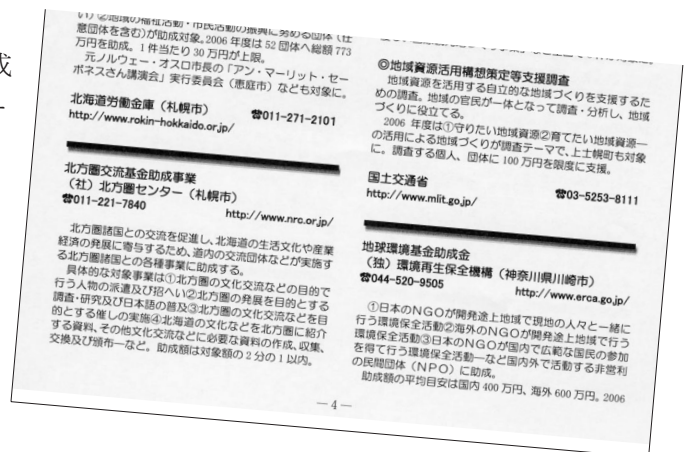 成
い）②地域の福祉活動・市民活動の振興に努める団体（任
意団体を含む）が助成対象。2006 年度は 52 団体へ総額 773
万円を助成。1 件当たり 30 万円が上限。
元ノルウェー・オスロ市長の「アン・マーリット・セー
ボネスさん講演会」実行委員会（恵庭市）なども対象に。
北海道労働金庫（札幌市）
☎011-271-2101
http://www.rokin-hokkaido.or.jp/
北方圏交流基金助成事業
（社）北方圏センター（札幌市）
☎011-221-7840
http://www.nrc.or.jp/
北方圏諸国との交流を促進し、北海道の生活文化や産業
経済の発展に寄与するため、道内の交流団体などが実施す
る北方圏諸国との各種事業に助成する。
具体的な対象事業は①北方圏の文化交流などの目的で
行う人物の派遣及び招へい②北方圏の発展を目的とする
調査・研究及び日本語の普及③北方圏の文化交流などを目
的とする催しの実施④北海道の文化などを北方圏に紹介
する資料、その他文化交流などに必要な資料の作成、収集、
交換及び頒布―など。助成額は対象額の 2 分の 1 以内。
◎地域資源活用構想策定等支援調査
地域資源を活用する自立的な地域づくりを支援するた
めの調査。地域の官民が一体となって調査・分析し、地域
づくりに役立てる。
2006 年度は①守りたい地域資源②育てたい地域資源―
の活用による地域づくりが調査テーマで、上士幌町も対象
に。調査する個人、団体に 100 万円を限度に支援。
国土交通省
☎03-5253-8111
http://www.mlit.go.jp/
地球環境基金助成金
（独）環境再生保全機構（神奈川県川崎市）
☎044-520-9505
http://www.erca.go.jp/
①日本のＮＧＯが開発途上地域で現地の人々と一緒に
行う環境保全活動②海外のＮＧＯが開発途上地域で行う
環境保全活動③日本のＮＧＯが国内で広範な国民の参加
を得て行う環境保全活動―など国内外で活動する非営利
の民間団体（ＮＰＯ）に助成。
助成額の平均目安は国内 400 万円、海外 600 万円。2006
― 4 ―